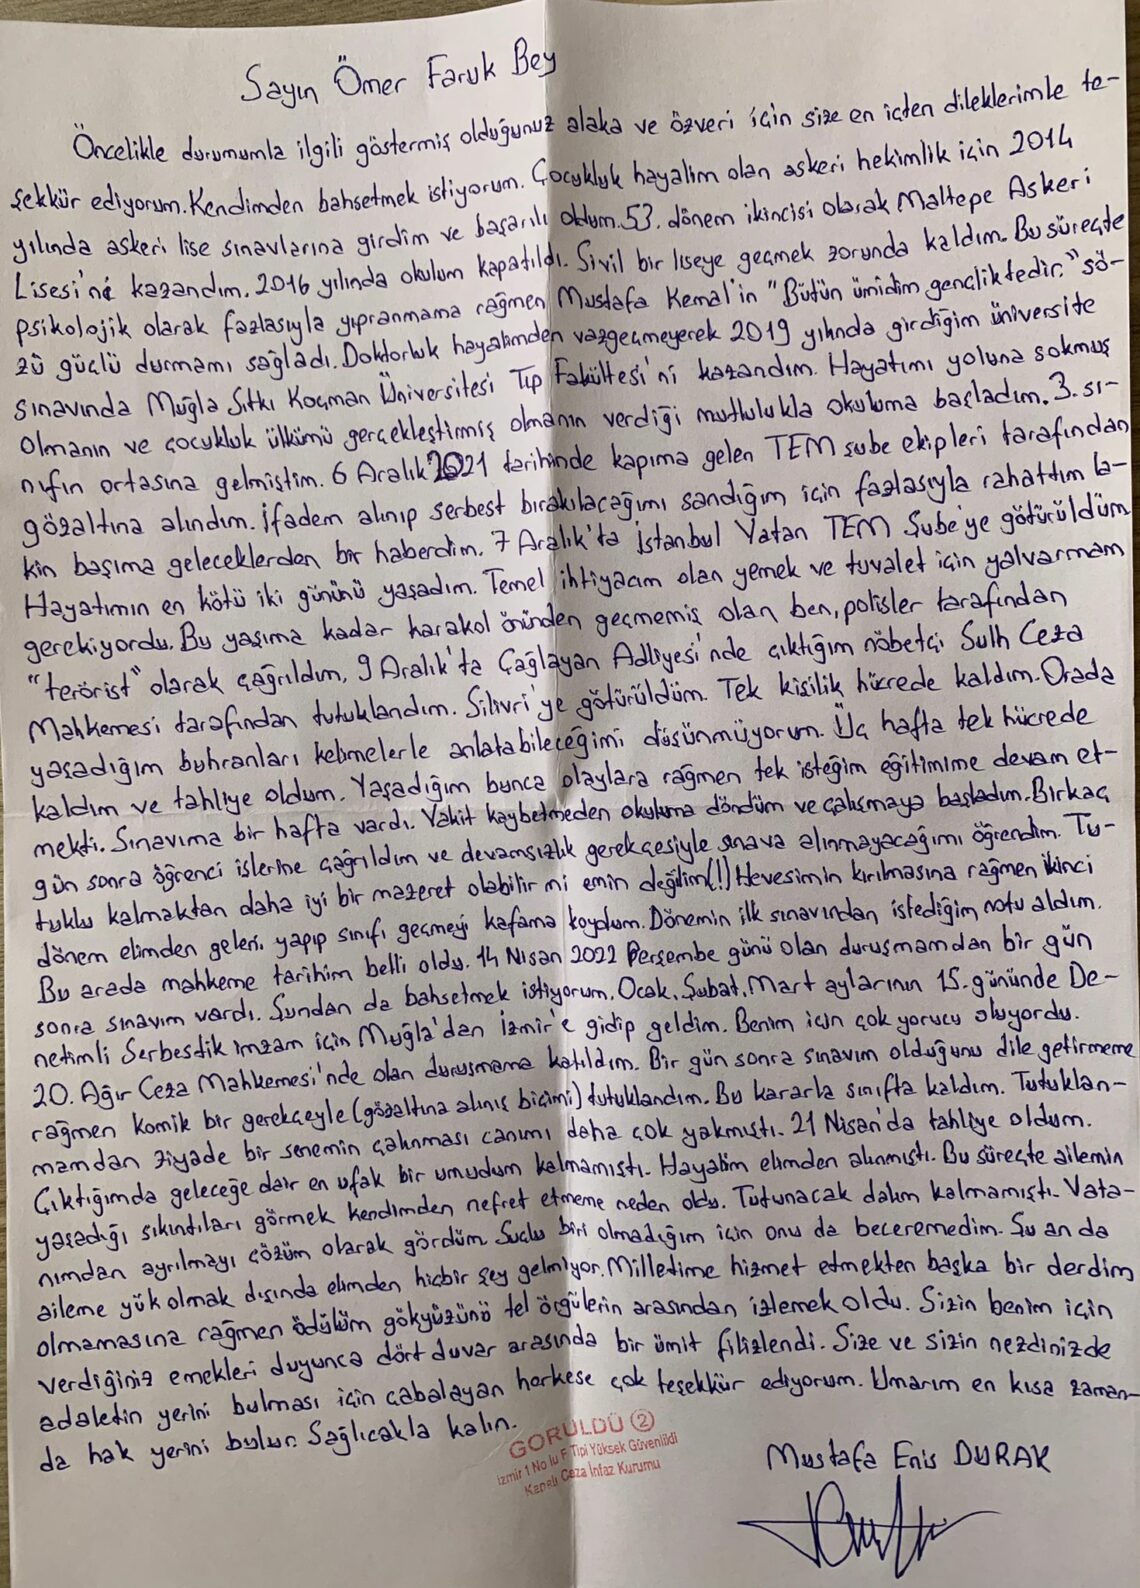 Sayın Ömer Faruk Bey
Öncelikle durumumla ilgili göstermiş olduğunuz alaka ve özveri için size en içten dileklerimle te-
şekkür ediyorum. Kendimden bahsetmek istiyorum. Çocukluk hayalim olan askeri hekimlik için 2014
yılında askeri lise sınavlarına girdim ve başarılı oldum. 53. dönem ikincisi olarak Maltepe Askeri
Lisesi'ne kazandım. 2016 yılında okulum kapatıldı. Sivil bir liseye geçmek zorunda kaldım. Bu süreçte
psikolojik olarak fazlasıyla yıpranmama rağmen Mustafa Kemal'in "Bütün ümidim gençliktedir." sö-
zü güçlü durmamı sağladı. Doktorluk hayalimden vazgeçmeyerek 2019 yılında girdiğim üniversite
sınavında Muğla Sıtkı Koçman Üniversitesi Tıp Fakültesi'ni kazandım. Hayatımı yoluna sokmuş
olmanın ve çocukluk ülkümü gerçekleştirmiş olmanın verdiği mutlulukla okuluma başladım. 3. sı-
nıfın ortasına gelmiştim. 6 Aralık 2021 tarihinde kapıma gelen TEM şube ekipleri tarafından
gözaltına alındım. İfadem alınıp serbest bırakılacağımı sandığım için fazlasıyla rahattım la-
kin başıma geleceklerden bir haberdim. 7 Aralık'ta İstanbul Vatan TEM Şube'ye götürüldüm.
Hayatımın en kötü iki gününü yaşadım. Temel ihtiyacım olan yemek ve tuvalet için yalvarmam
gerekiyordu. Bu yaşıma kadar karakol önünden geçmemiş olan ben, polisler tarafından
"terörist" olarak çağrıldım. 9 Aralık'ta Çağlayan Adliyesi'nde çıktığım nöbetçi Sulh Ceza
Mahkemesi tarafından tutuklandım. Silivri'ye götürüldüm. Tek kişilik hücrede kaldım. Orada
yaşadığım buhranları kelimelerle anlatabileceğimi düşünmüyorum. Üç hafta tek hücrede
kaldım ve tahliye oldum. Yaşadığım bunca olaylara rağmen tek isteğim eğitimime devam et-
mekti. Sınavıma bir hafta vardı. Vakit kaybetmeden okuluma döndüm ve çalışmaya başladım. Birkaç
gün sonra öğrenci işlerine çağrıldım ve devamsızlık gerekçesiyle sınava alınmayacağımı öğrendim. Tu-
tuklu kalmaktan daha iyi bir mazeret olabilir mi emin değilim(!) Hevesimin kırılmasına rağmen ikinci
dönem elimden geleni yapıp sınıfı geçmeyi kafama koydum. Dönemin ilk sınavından istediğim notu aldım.
Bu arada mahkeme tarihim belli oldu. 14 Nisan 2022 Perşembe günü olan duruşmamdan bir gün
sonra sınavım vardı. Şundan da bahsetmek istiyorum. Ocak, Şubat, Mart aylarının 15. gününde De-
netimli Serbestlik imzam için Muğla'dan İzmir'e gidip geldim. Benim için çok yorucu oluyordu.
20. Ağır Ceza Mahkemesi'nde olan duruşmama katıldım. Bir gün sonra sınavım olduğunu dile getirmeme
rağmen komik bir gerekçeyle (gözaltına alınış biçimi) tutuklandım. Bu kararla sınıfta kaldım. Tutuklan-
mamdan ziyade bir senemin çalınması canımı daha çok yakmıştı. 21 Nisan'da tahliye oldum.
Çıktığımda geleceğe dair en ufak bir umudum kalmamıştı. Hayalim elimden alınmıştı. Bu süreçte ailemin
yaşadığı sıkıntıları görmek kendimden nefret etmeme neden oldu. Tutunacak dalım kalmamıştı. Vata-
nımdan ayrılmayı çözüm olarak gördüm. Suçlu biri olmadığım için onu da beceremedim. Şu an da
aileme yük olmak dışında elimden hiçbir şey gelmiyor. Milletime hizmet etmekten başka bir derdim
olmamasına rağmen ödülüm gökyüzünü tel örgülerin arasından izlemek oldu. Sizin benim için
verdiğiniz emekleri duyunca dört duvar arasında bir ümit filizlendi. Size ve sizin nezdinizde
adaletin yerini bulması için çabalayan herkese çok teşekkür ediyorum. Umarım en kısa zaman-
da hak yerini bulur. Sağlıcakla kalın.
GÖRÜLDÜ 2
İzmir 1 No lu F Tipi Yüksek Güvenlikli
Kapalı Ceza İnfaz Kurumu
Mustafa Enis DURAK